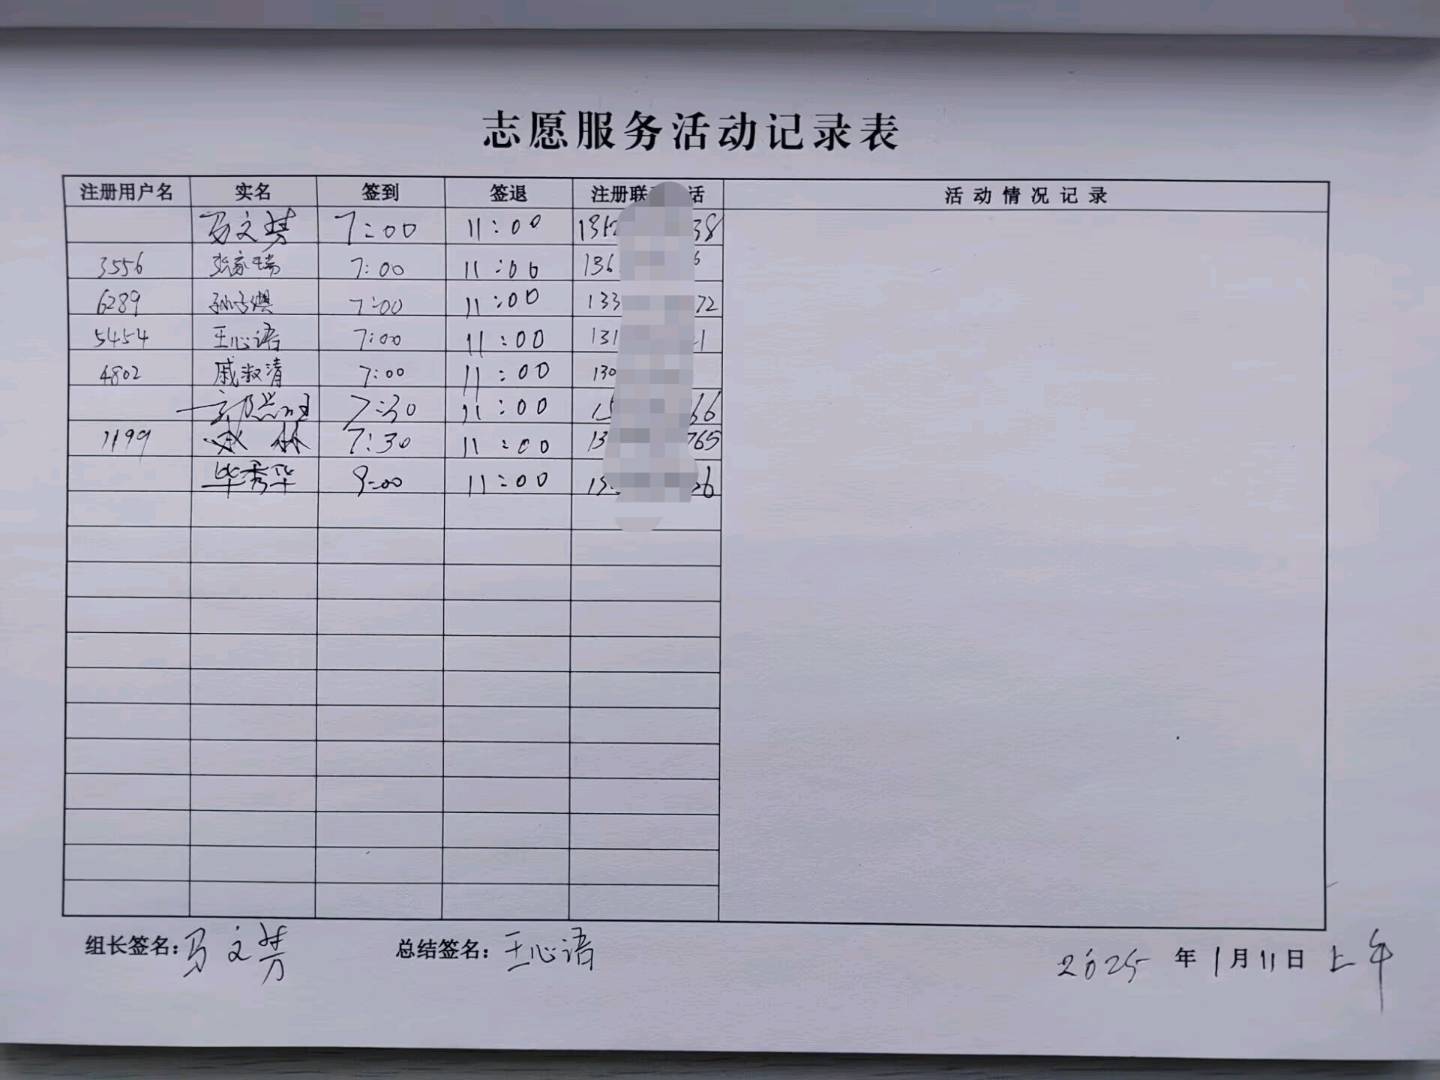 志愿服务活动记录表
注册用户名 实名 签到 签退 注册联 话 活动情况记录
马文 7:00 11:00 13 38
3556 张家瑞 7:00 11:00 136 6
6289 孙子 7:00 11:00 133 72
5454 王心语 7:00 11:00 131 1
4802 戚淑清 7:00 11:00 130
7:30 11:00 66
1199 林 7:30 11:00 13 765
毕秀华 9:00 11:00 26
组长签名: 马文 总结签名: 王心语 2025 年 1 月 11 日 上午